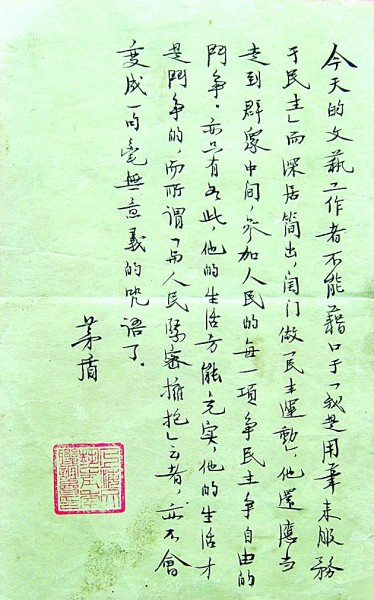 今天的文藝工作者不能藉口于「我是用筆来服務
于民主」而深居简出,闭门做「民主運動」,他還應当
走到群衆中间,参加人民的每一項争民主争自由的
鬥争。亦只有如此,他的生活方能充实,他的生活才
是鬥争的,而所谓「与人民緊密擁抱」云者,亦不會
变成一句毫無意義的咒語了。
茅盾